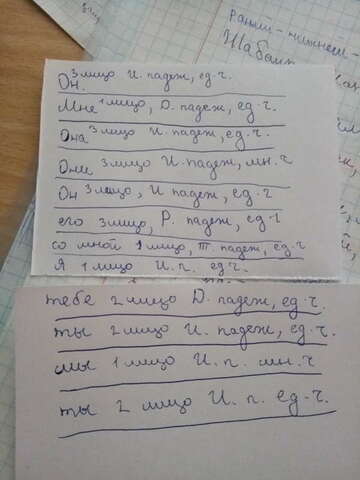 Рании-нижнем-
Он. 3 лицо И. падеж, ед.ч.
Мне 1 лицо, D. падеж, ед.ч.
Она 3 лицо И. падеж, ед.ч.
Они 3 лицо И. падеж, мн.ч
Он 3 лицо, И падеж, ед.ч
его 3 лицо, Р. падеж, ед.ч
со мной 1 лицо, Т. падеж, ед.ч
Я 1 лицо И.п. ед.ч.
тебе 2 лицо D. падеж, ед.ч.
ты 2 лицо И. падеж, ед.ч.
мы 1 лицо И. п. мн.ч
ты 2 лицо И. п. ед.ч.